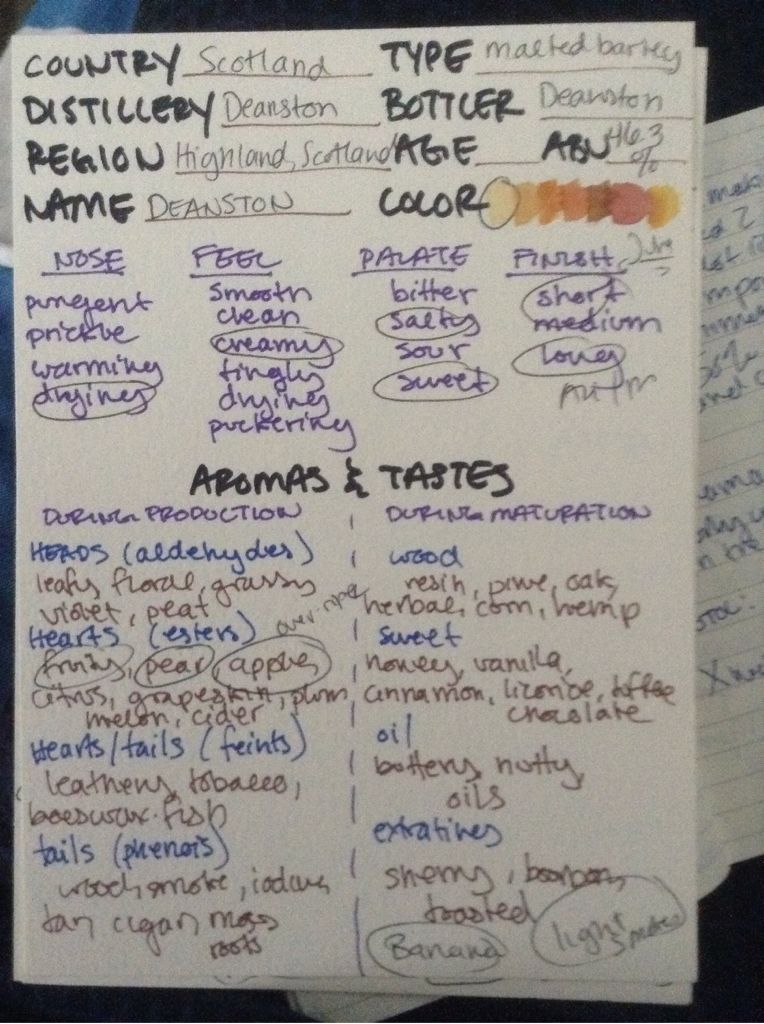 COUNTRY Scotland TYPE malted barley
DISTILLERY Deanston BOTTLER Deanston
REGION Highland, Scotland AGE ABV 46.3 %
NAME DEANSTON COLOR
NOSE FEEL PALATE FINISH
pungent smooth bitter short
prickle clean salty medium
warming creamy sour long
drying tingly sweet
drying
puckering
AROMAS & TASTES
DURING PRODUCTION DURING MATURATION
HEADS (aldehydes) wood
leafy floral, grassy resin, pine, oak,
violet, peat herbal, corn, hemp
Hearts (esters) over ripe sweet
fruity, pear, apple, honey, vanilla,
citrus, grapeskin, plum cinnamon, licorice, toffee
melon, cider chocolate
Hearts/tails (feints) oil
leathery, tobacco, buttery, nutty,
beeswax. fish oils
tails (phenols) extratives
woodsmoke, iodine, sherry, bourbon,
tar, cigar, moss toasted
roots Banana light